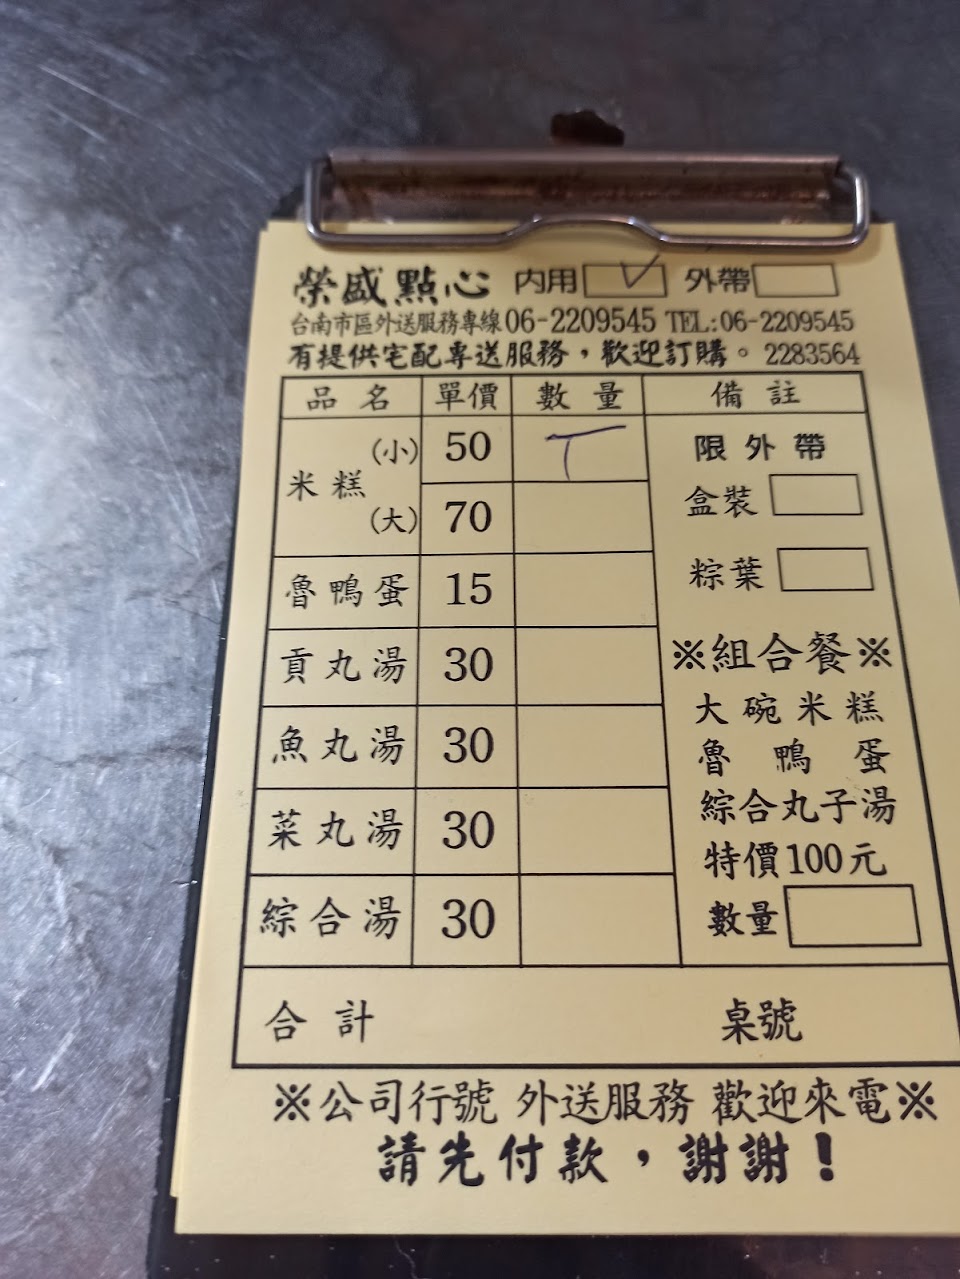 榮盛點心 內用 ✓ 外帶
台南市區外送服務專線06-2209545 TEL:06-2209545
有提供宅配專送服務，歡迎訂購。 2283564
品名 單價 數量 備註
米糕 (小) 50 T
(大) 70
魯鴨蛋 15
貢丸湯 30
魚丸湯 30
菜丸湯 30
綜合湯 30
限外帶
盒裝
粽葉
※組合餐※
大碗米糕
魯鴨蛋
綜合丸子湯
特價100元
數量
合計 桌號
※公司行號 外送服務 歡迎來電※
請先付款，謝謝！